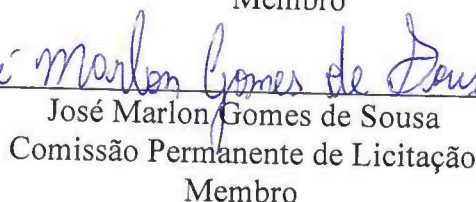 Membro
é Marlon Gomes de Sous
José Marlon Gomes de Sousa
Comissão Permanente de Licitação
Membro